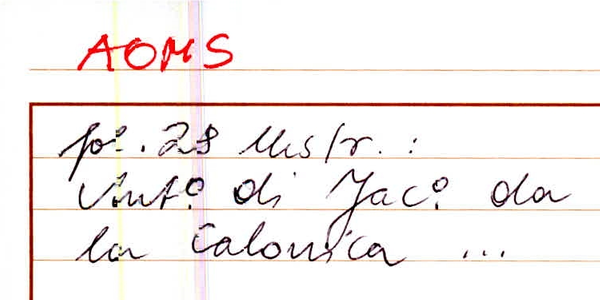 AOMS
po. 28 Mstr.:
Anto. di Jaco. da
la Calonica ...